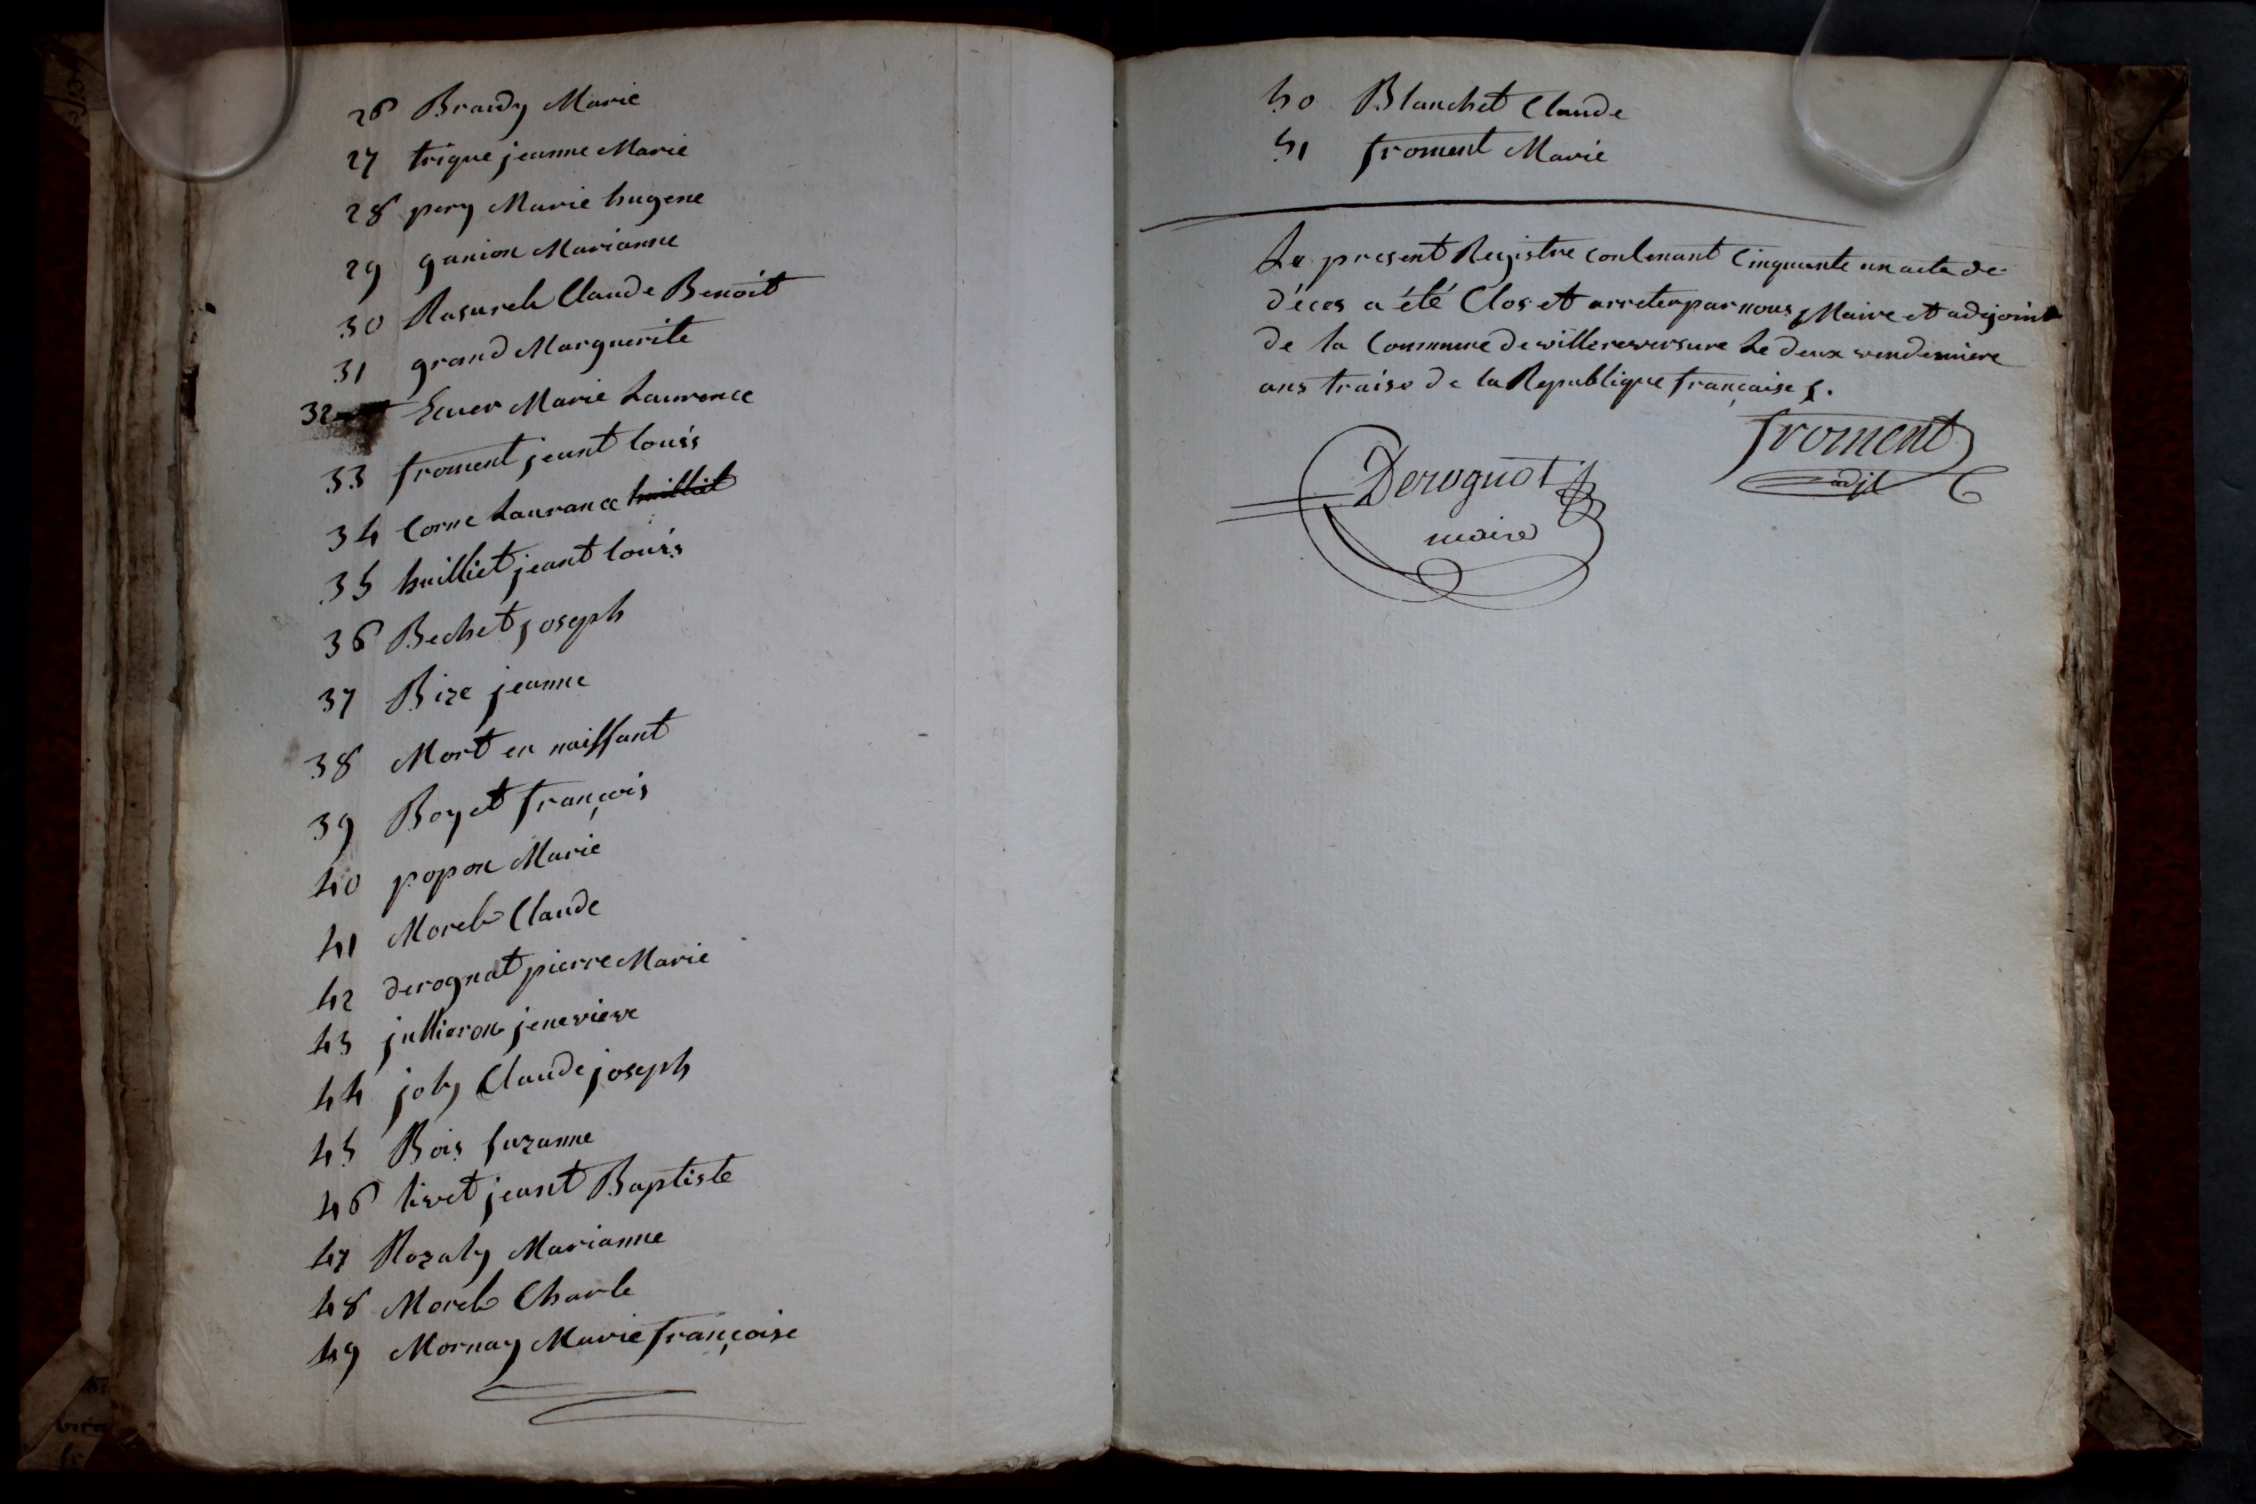 26 Brardy Marie
27 trique jeanne Marie
28 pery Marie hugene
29 ganion Marianne
30 Rasurel Claude Benoit
31 grand Marguerite
32 Marie Laurence
33 froment jeant louis
34 Corne Laurance huilliet
35 huilliet jeant louis
36 Bechet joseph
37 Bize jeanne
38 Mort en naissant
39 Boyet françois
40 popon Marie
41 Morel Claude
42 derognat pierre Marie
43 jullieron jenevieve
44 joly Claude joseph
45 Bois suzanne
46 livet jeant Baptiste
47 Rozaly Marianne
48 Morel Charle
49 Mornay Marie françoise
50 Blanchet Claude
51 froment Marie
Le present Registre contenant Cinquante un acte de
déces a été Clos et arreter par nous Maire et adjoint
de la Commune de villereversure Le deux vendemiere
ans traise de la Republique française
froment
adjt
Derognat
maire